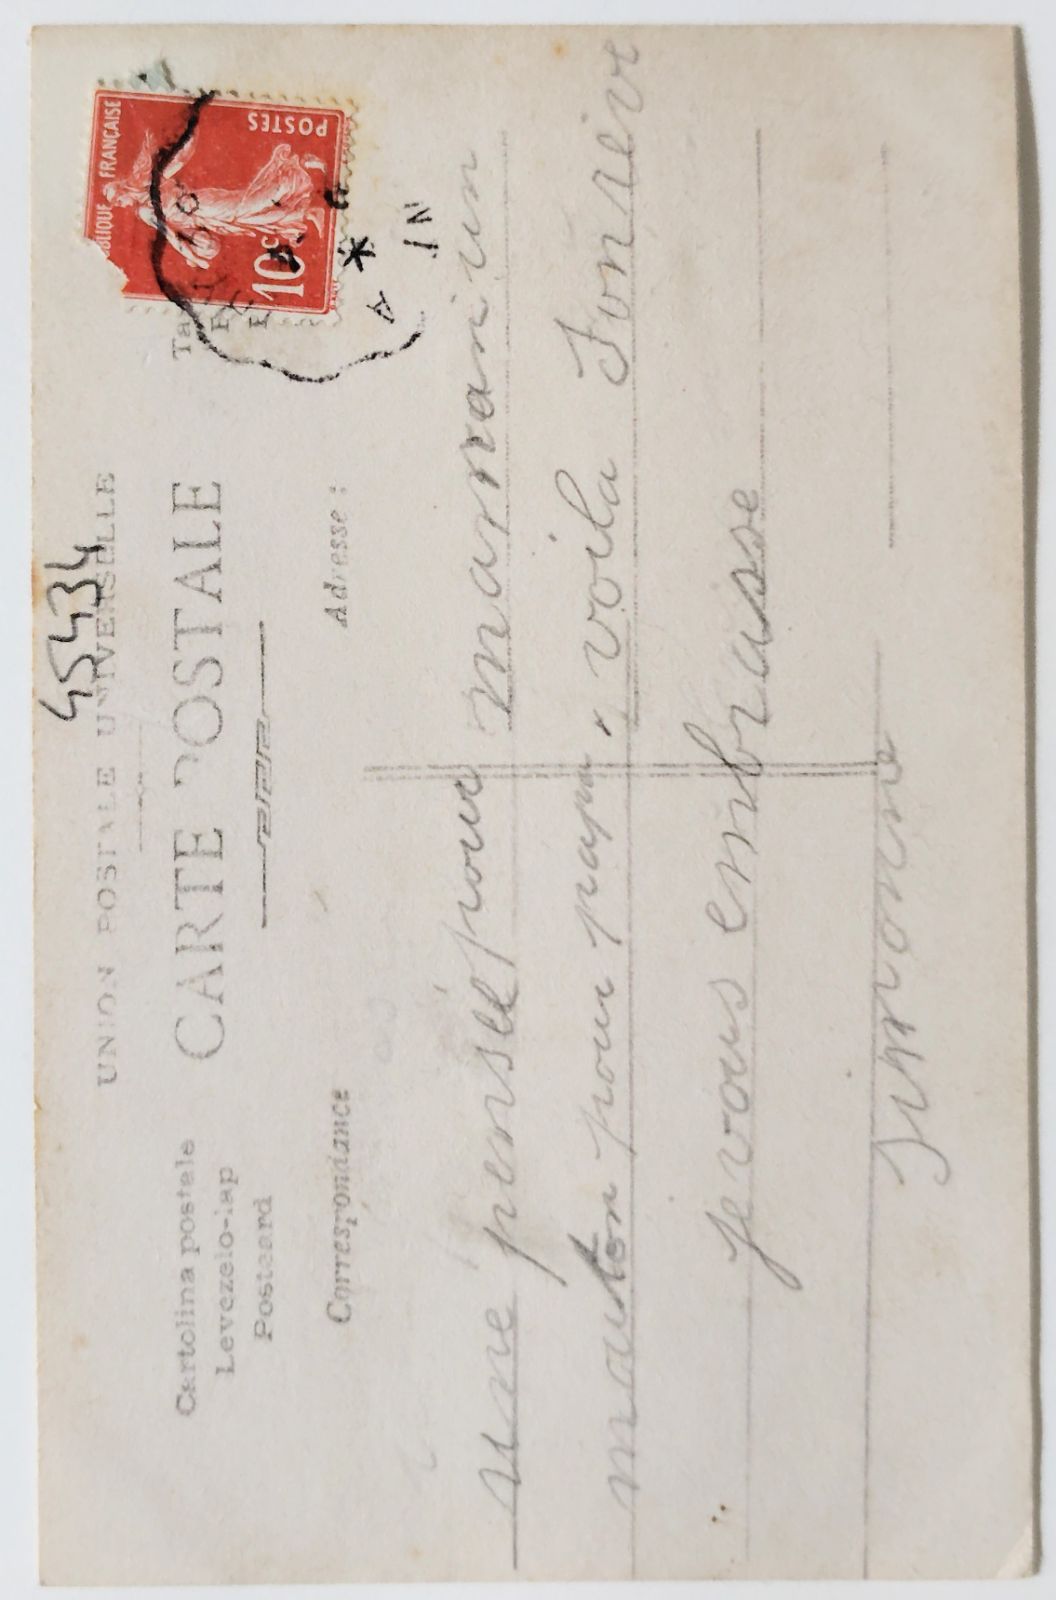 45434
UNION POSTALE UNIVERSELLE
CARTE POSTALE
Cartolina postale
Levezelo-lap
Postcard
Correspondance
Adresse :
FRANÇAISE
POSTES
10c
une pensée pour maman un
mouton pour papa, voila
je vous embrasse
Simone